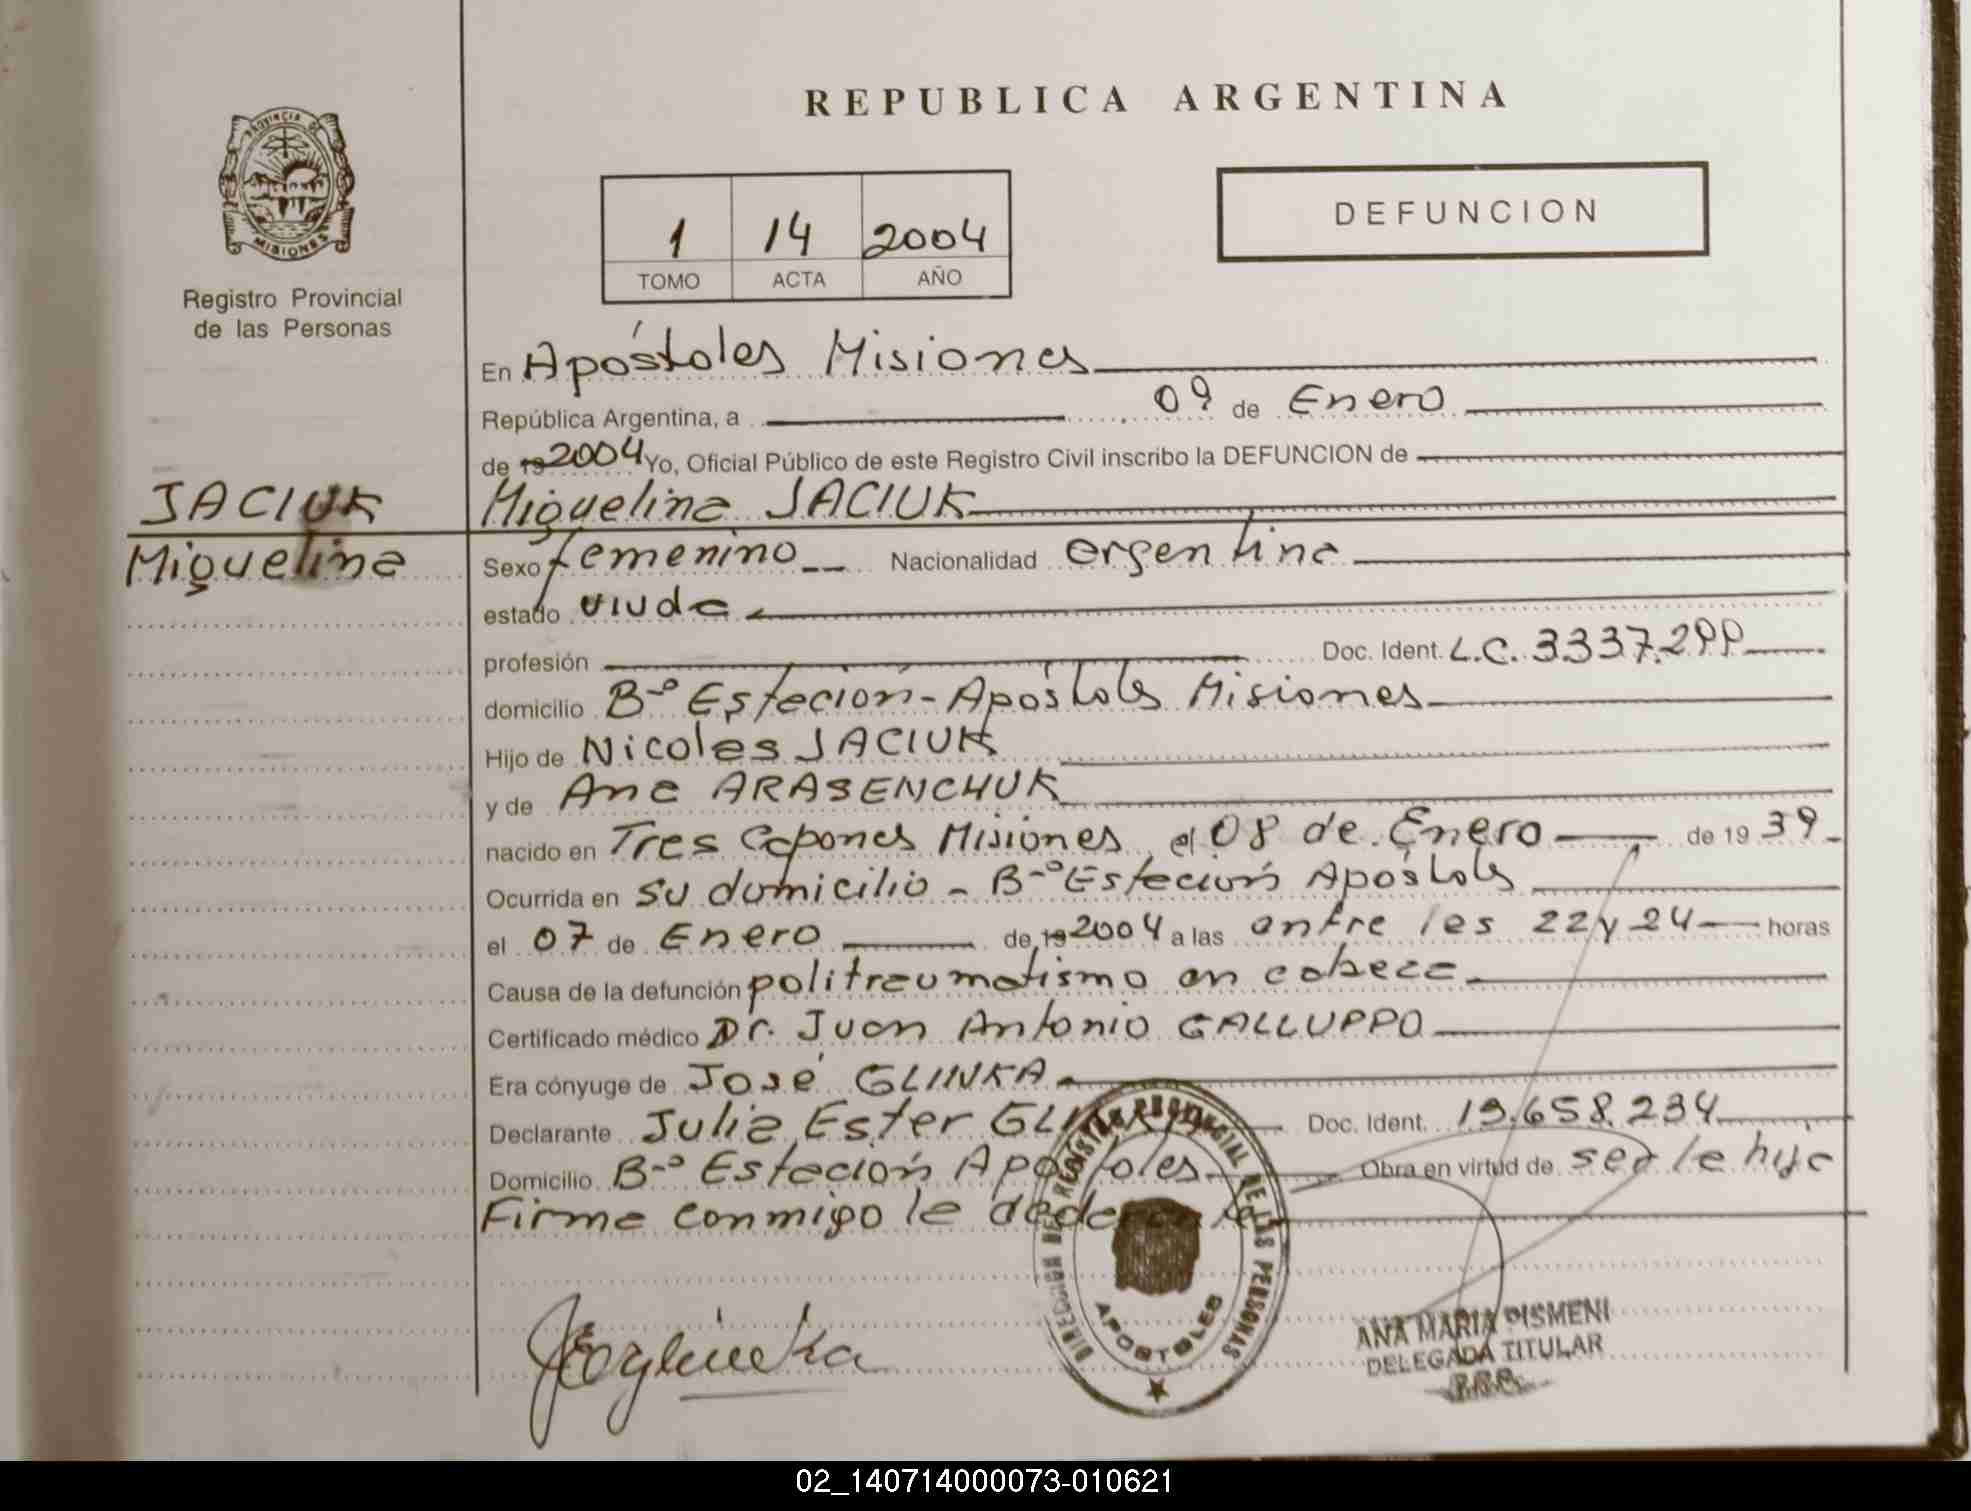 REPUBLICA ARGENTINA
PROVINCIA DE
MISIONES
Registro Provincial
de las Personas
1 14 2004
TOMO ACTA AÑO
DEFUNCION
En Apóstoles Misiones
República Argentina, a 09 de Enero
de 19 2004 Yo, Oficial Público de este Registro Civil inscribo la DEFUNCION de
JACIUK
Miguelina
Miguelina JACIUK
Sexo femenino Nacionalidad argentina
estado viuda
profesión Doc. Ident. L.C. 3.337.299
domicilio B-º Estación - Apóstoles Misiones
Hijo de Nicolas JACIUK
y de Ana ARASENCHUK
nacido en Tres Capones Misiones, el 08 de Enero de 19 39
Ocurrida en su domicilio - B-º Estación Apóstoles
el 07 de Enero de 19 2004 a las entre las 22 y 24 horas
Causa de la defunción politraumatismo en cabeza
Certificado médico Dr. Juan Antonio GALLUPPO
Era cónyuge de José GLINKA
Declarante Julia Ester GLINKA Doc. Ident. 13.658.234
Domicilio B-º Estación Apostoles Obra en virtud de ser la hija
Firma conmigo la declarante
DIRECCION DEL REGISTRO PROVINCIAL DE LAS PERSONAS
APOSTOLES
ANA MARIA PISMENI
DELEGADA TITULAR
02_140714000073-010621